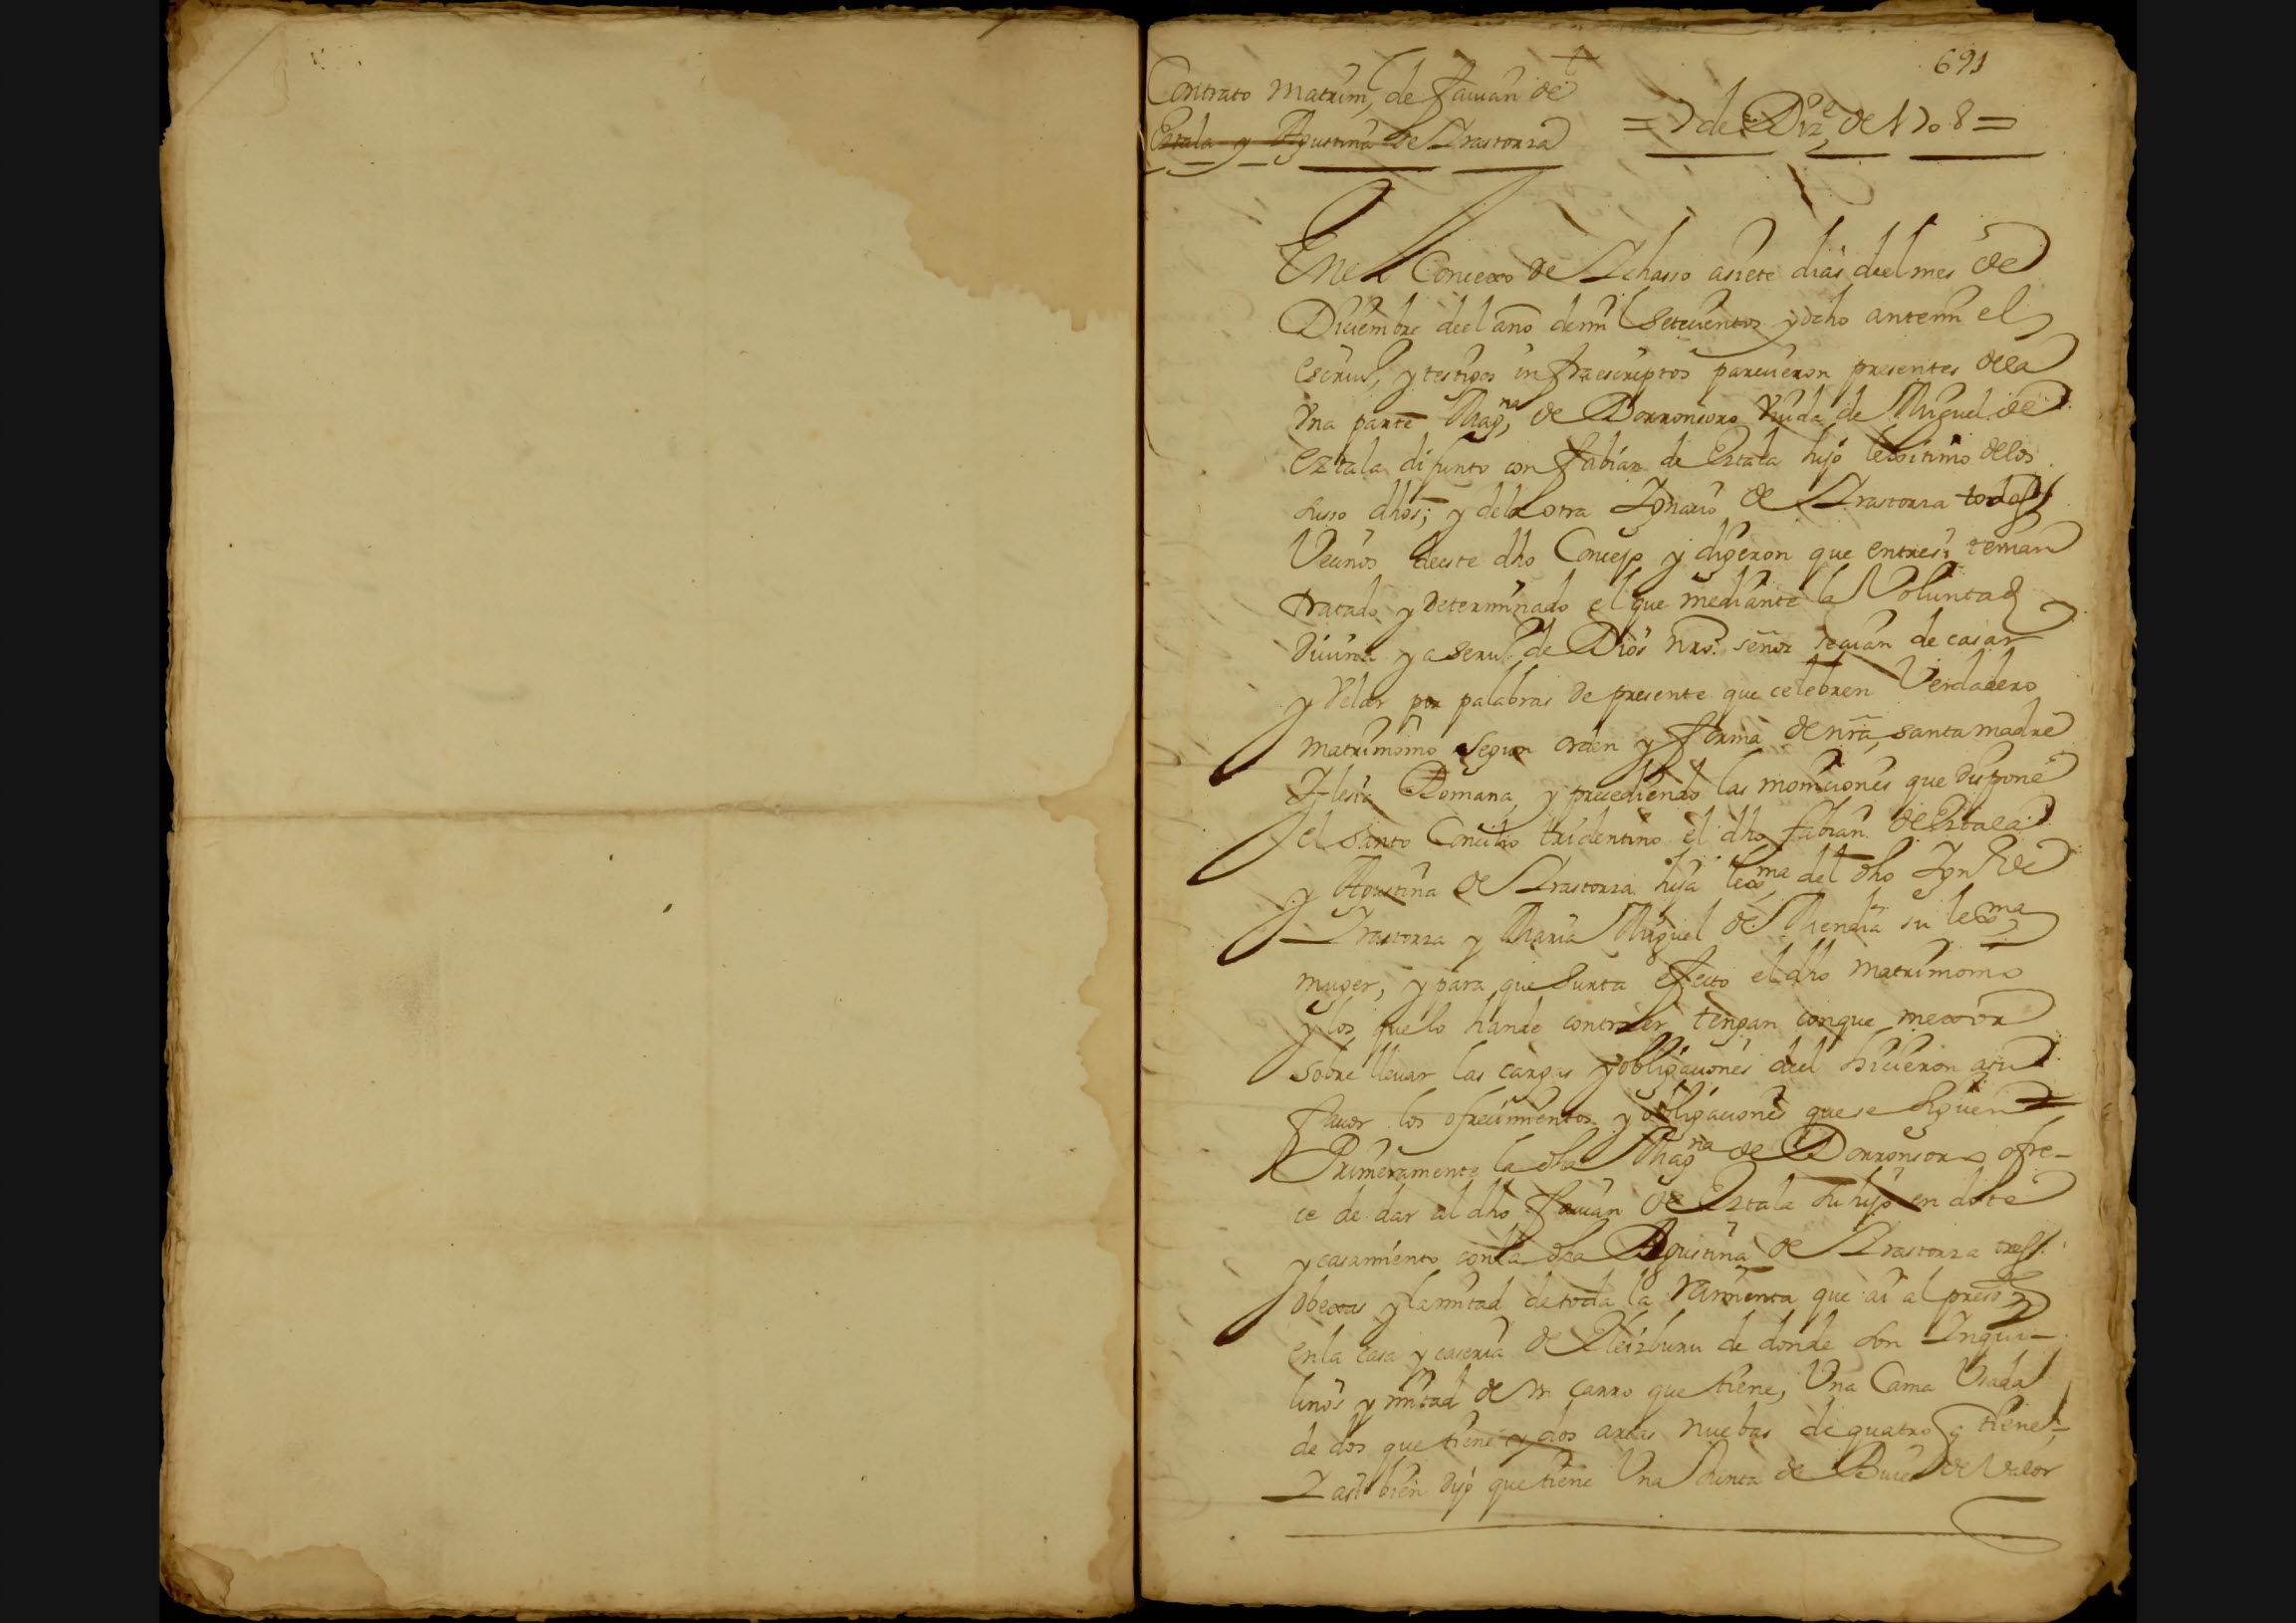 691
Contrato Matrim, de fauian de
Eztala y Agustina de Yrastorza
= 7 de Diz,e de 1708 =
Enel Concexo de Ychasso asiete dias deel mes de
Diciembre deel año demil Setecientos y ocho antemi el
escriu, y testigos infraescriptos parecieron presentes dela
Vna parte Mag,na de Dorronsoro Viuda de Miguel de
Eztala difunto con fabian de Eztala hijo lexitimo delos
susso dhos; y dela otra Ygnacio de Yrastorza todos
Vecinos deeste dho Concejo y digeron que entresi tenian
tratado y determinado el que mediante la Voluntad
Diuina y a seru,o de Dios nro. señor seaian de casar
y Velar por palabras de presente que celebren Verdadero
matrimonio segun orden y forma de nra, santa madre
Yglesia Romana, y precediendo las moniciones que dispone
el santo Concilio tridentino el dho fabian de Eztala
y Agustina de Yrastorza hija lex,ma del dho Ygn,o de
Yrastorza y Maria Miguel de Mendia su lexma
muger, y para que surta efecto el dho matrimonio
y los que lo hande contraer tengan conque mexor
sobre lleuar las cargas y obligaciones deel hicieron asu
fauor los ofrecimientos y obligaciones que se siguen =
Primeramente la dha Magna de Dorronsoro ofre-
ce de dar al dho fauian de Eztala su hijo en dote
y casamiento conla dha Agustina de Yrastorza tres
obexas y lamitad detoda la rarmienta que ai al press,te
enla casa y caseria de Eleizburu de donde son Ynqui-
linos y mitad de vn carro que tiene, Vna Cama Vsada
de dos que tiene y dos arcas nuebas de quatro q tiene,
Y asi bien dijo que tiene Vna Iunta de Bueies de valor